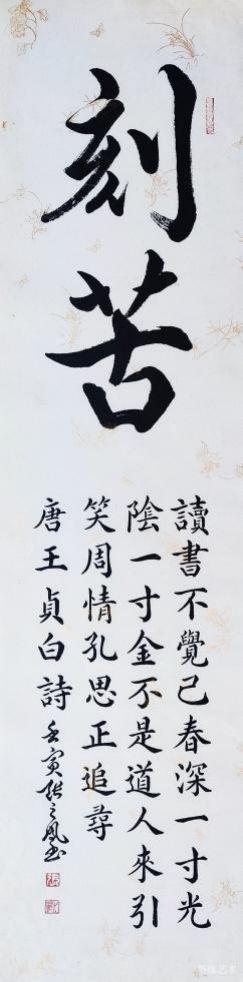 刻苦
讀書不覺已春深一寸光
陰一寸金不是道人來引
笑周情孔思正追尋
唐王貞白詩 壬寅張之鳳書